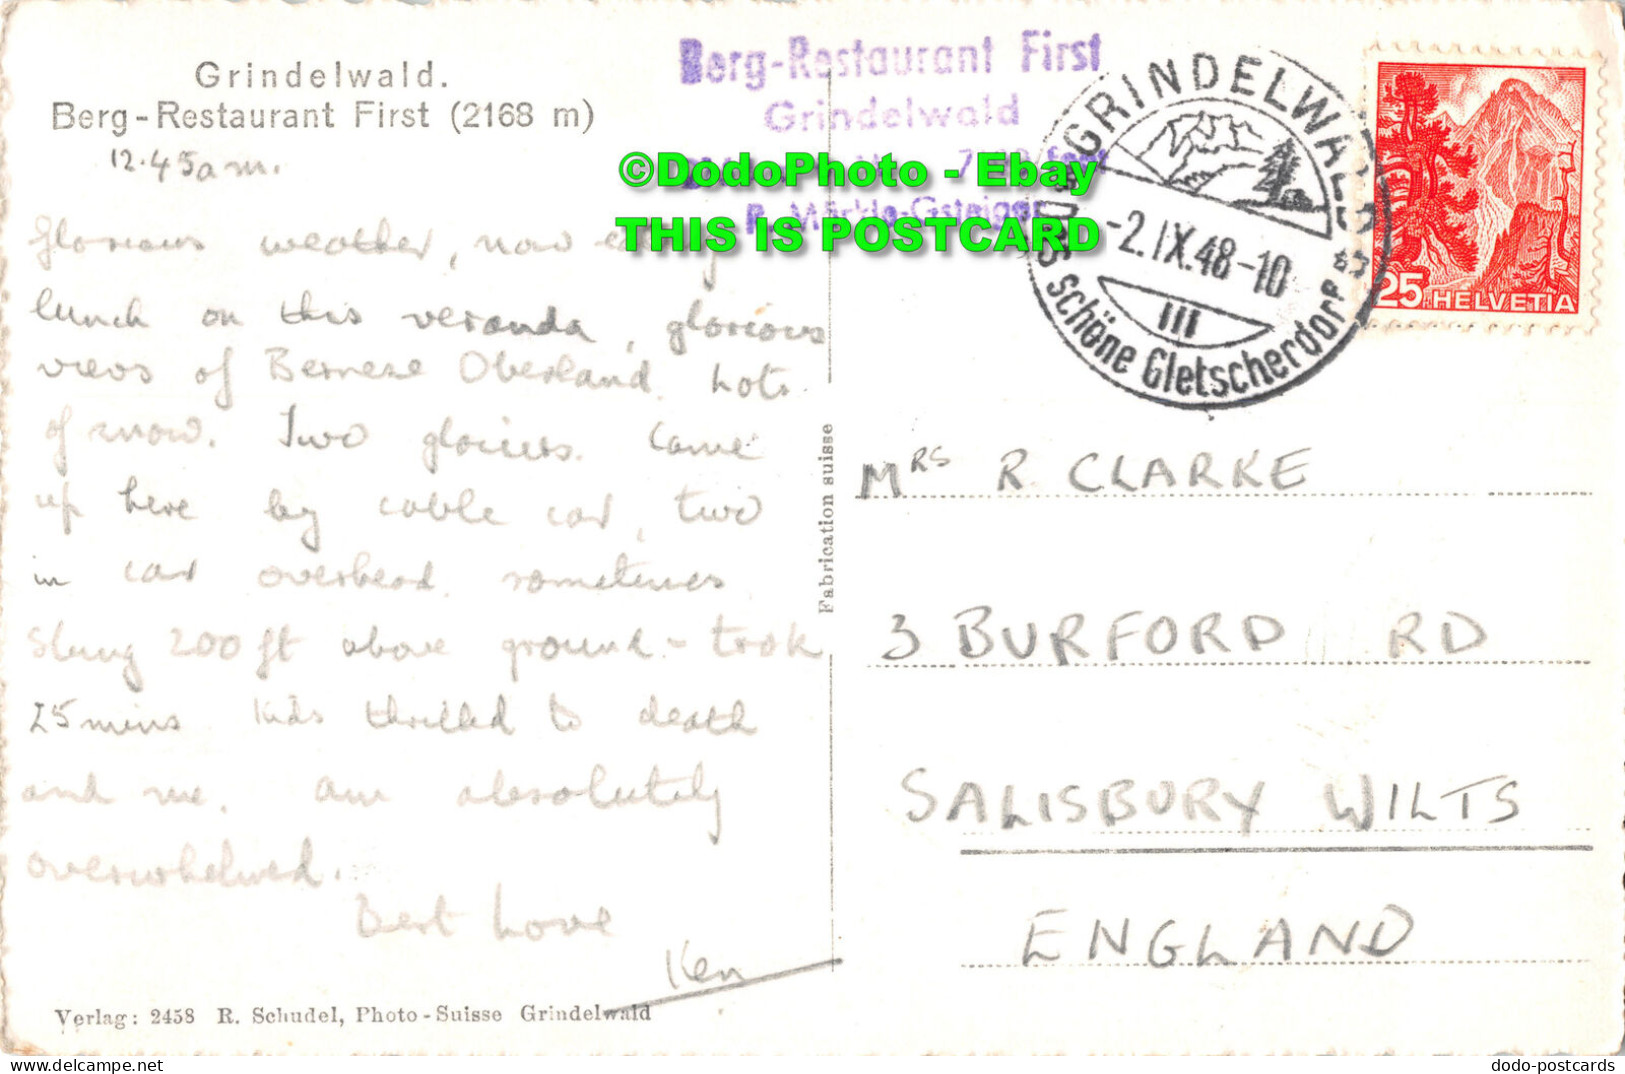 Grindelwald.
Berg-Restaurant First (2168 m)
12.45am.
Glorious weather, now
lunch on this veranda, glorious
views of Bernese Oberland. Lots
of snow. Two glaciers. Came
up here by cable car, two
in car overhead sometimes
slung 200 ft above ground - took
25 mins. Kids thrilled to death
and me. Am absolutely
overwhelmed.
Best Love
Ken
Verlag: 2458 R. Schudel, Photo-Suisse Grindelwald
Fabrication suisse
Berg-Restaurant First
Grindelwald
©DodoPhoto - Ebay
THIS IS POSTCARD
GRINDELWALD
-2.IX.48-10
III
Schöne Gletscherdorf
25 HELVETIA
MRS R. CLARKE
3 BURFORD RD
SALISBURY WILTS
ENGLAND
dodo-postcards